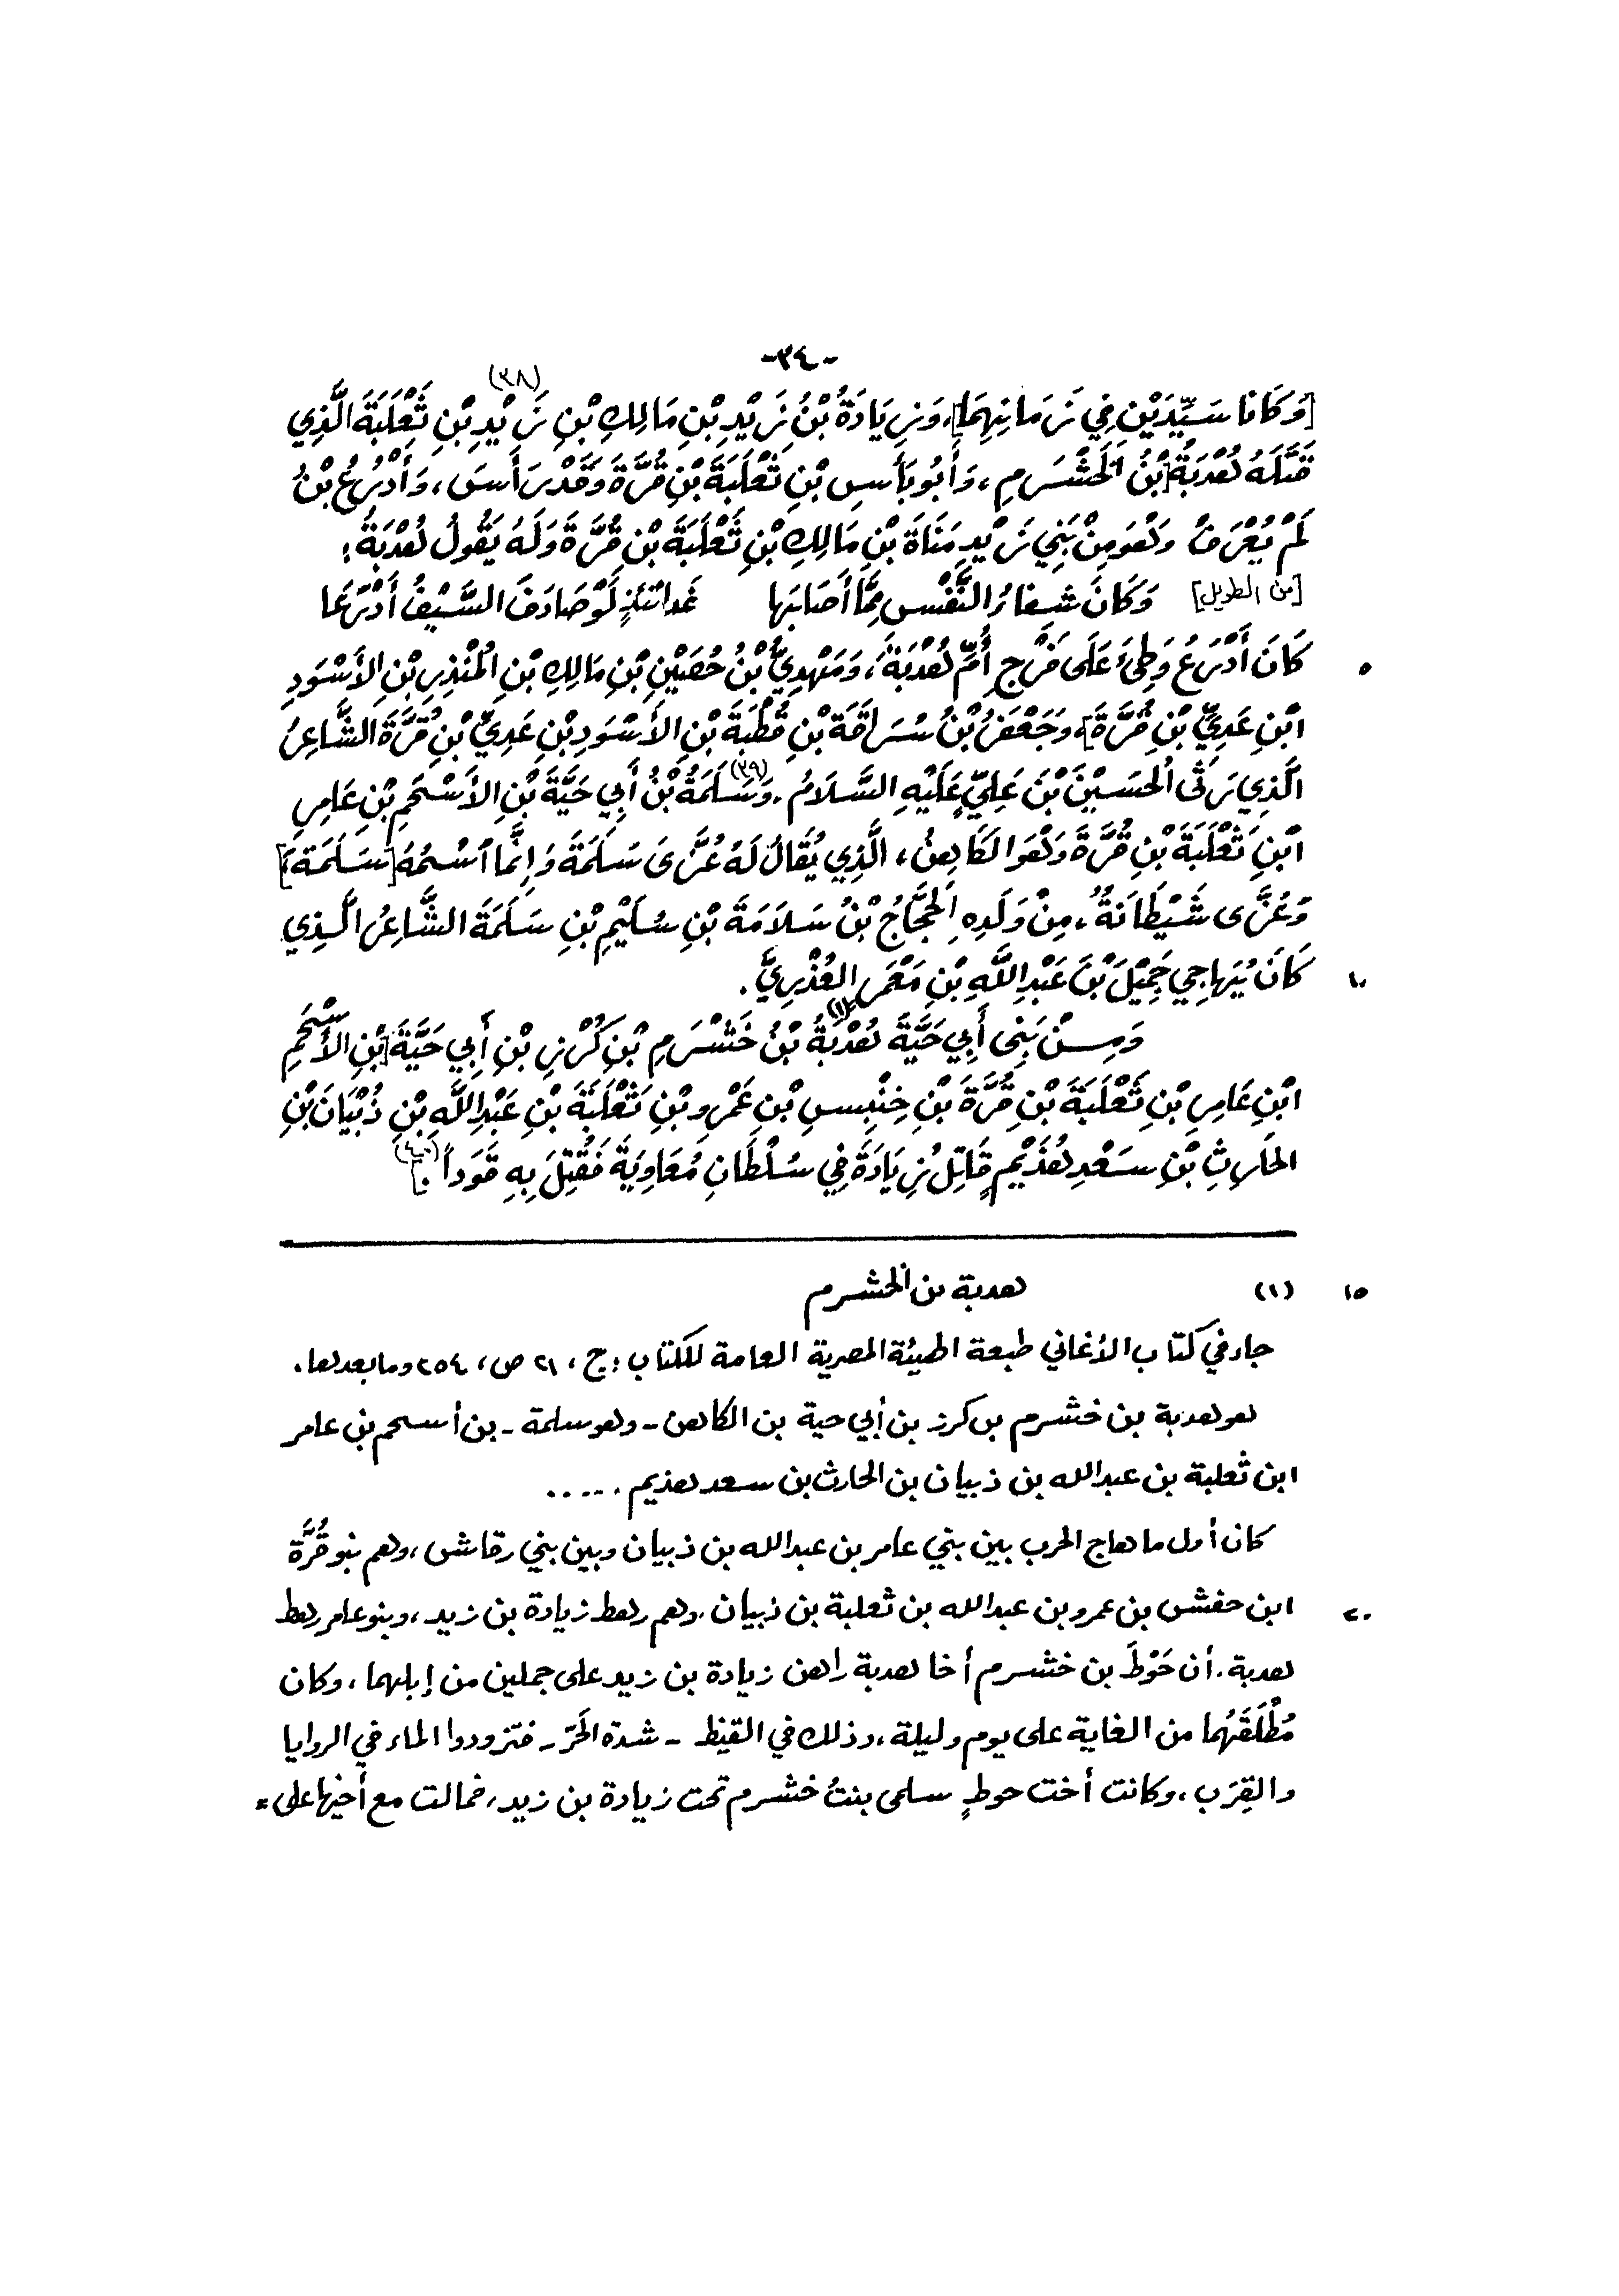 -٣٤-
[وَكَانا سَيِّدَيْنِ فِي زَمانِهِمَا]، وَزِيَادَةُ بْنُ زَيْدِ بْنِ مَالِكِ بْنِ زَيْدِ بْنِ ثَعْلَبَةَ الَّذِي (٣٨)
قَتَلَهُ هُدْبَةُ [بْنُ الخَشْرَمِ]، وَأَبُو يَأسِ بْنِ ثَعْلَبَةَ بْنِ قُرَّةَ وَقَدْ رَأَسَ، وَأَدْرُعُ بْنُ
لَمْ يُعْرَفْ وَهُوَ مِنْ بَنِي زَيْدِ مَنَاةَ بْنِ مَالِكِ بْنِ ثَعْلَبَةَ بْنِ قُرَّةَ وَلَهُ يَقُولُ هُدْبَةُ:
[من الطويل] وَكَانَ شِفاءُ النَّفْسِ مِمَّا أَصَابَها غَدَاتَئِذٍ لَوْ صَادَفَ السَّيْفُ أَدْرَعَا
كَانَ أَدْرَعُ وَطِىءَ عَلَى فَرْجِ أُمِّ هُدْبَةَ، وَمَهْدِيُّ بْنُ حُصَيْنِ بْنِ مَالِكِ بْنِ المُنْذِرِ بْنِ الأَسْوَدِ ٥
ابْنِ عَدِيِّ بْنِ قُرَّةَ]، وَجَعْفَرُ بْنُ سُرَاقَةَ بْنِ قُطْبَةَ بْنِ الأَسْوَدِ بْنِ عَدِيِّ بْنِ قُرَّةَ الشَّاعِرُ
الَّذِي رَثَى الحُسَيْنَ بْنَ عَلِيٍّ عَلَيْهِ السَّلَامُ. (٣٩) وَسَلَمَةُ بْنُ أَبِي حَيَّةَ بْنِ الأَسْحَمِ بْنِ عَامِرِ
ابْنِ ثَعْلَبَةَ بْنِ قُرَّةَ وَهُوَ الكَاهِنُ، الَّذِي يُقَالُ لَهُ عُزَّى سَلَمَةَ وَإِنَّمَا اسْمُهُ [سَلَمَةُ]
وَعُزَّى شَيْطَانَةٌ، مِنْ وَلَدِهِ الحَجَّاجُ بْنُ سَلَامَةَ بْنِ سُلَيْمِ بْنِ سَلَمَةَ الشَّاعِرُ الَّذِي
كَانَ يُهاجِي جَمِيْلَ بْنَ عَبْدِ اللَّهِ بْنِ مَعْمَرٍ العُذْرِيَّ. ١٠
وَمِنْ بَنِي أَبِي حَيَّةَ هُدْبَةُ (١) بْنُ خَشْرَمِ بْنِ كُرْزِ بْنِ أَبِي حَيَّةَ [بْنِ الأَسْحَمِ
ابْنِ عَامِرِ بْنِ ثَعْلَبَةَ بْنِ قُرَّةَ بْنِ خِنْبِسِ بْنِ عَمْرِو بْنِ ثَعْلَبَةَ بْنِ عَبْدِ اللَّهِ بْنِ ذُبْيَانَ بْنِ
الحَارِثِ بْنِ سَعْدِ هُذَيْمٍ قَاتِلُ زِيَادَةَ فِي سُلْطَانِ مُعَاوِيَةَ فَقُتِلَ بِهِ قَوَداً]. (٤٠)
(١) هدبة بن الخشرم ١٥
جاء في كتاب الأغاني طبعة الهيئة المصرية العامة للكتاب: ج، ٢١ ص، ٢٥٤ وما بعدها.
هو هدبة بن خشرم بن كرز بن أبي حية بن الكاهن - وهو سلمة - بن أسحم بن عامر
ابن ثعلبة بن عبدالله بن ذبيان بن الحارث بن سعد هذيم . . . . .
كان أول ما هاج الحرب بين بني عامر بن عبدالله بن ذبيان وبين بني رقاش، وهم بنو قُرَّة
ابن حفش بن عمرو بن عبدالله بن ثعلبة بن ذبيان، وهم رهط زيادة بن زيد، وبنو عامر رهط ٢٠
هدبة. أن حَوْطَ بن خشرم أخا هدبة راهن زيادة بن زيد على جملين من إبلهما، وكان
مُطْلَقَهُما من الغاية على يوم وليلة، وذلك في القيظ - شدة الحَرّ - فتزودوا الماء في الروايا
والقِرَب، وكانت أخت حوطٍ سلمى بنتُ خشرم تحت زيادة بن زيد، فمالت مع أخيها على =